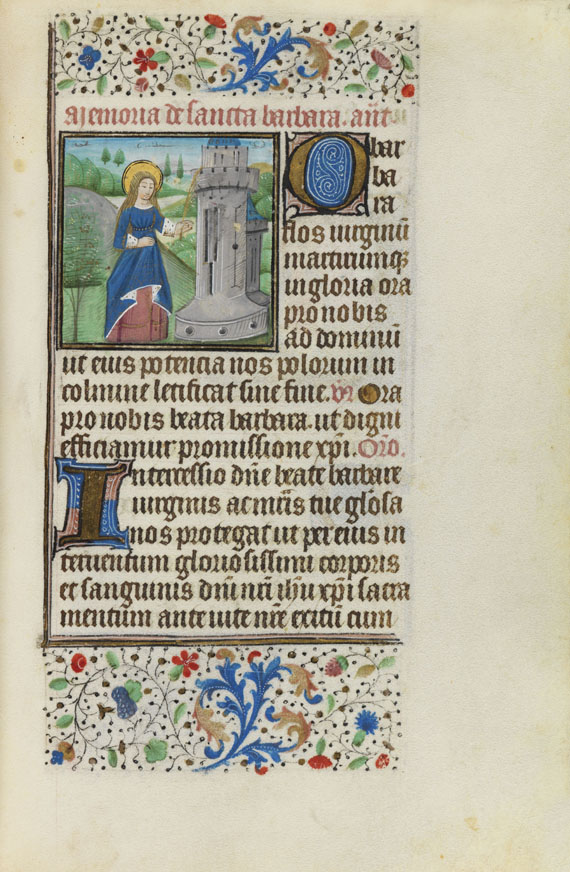 Memoria de sancta barbara. añt
O bar
ba
ra
flos uirginũ
martirumqꝫ
in gloria ora
pro nobis
ad dominũ
ut eius potencia nos polorum in
colmine letificat sine fine. vr Ora
pro nobis beata barbara. ut digni
efficiamur promissione xp̃i. Or̃o.
Intercessio dñe beate barbare
uirginis ac mr̃is tue glosa
nos protegat ut per eius in
teruentum gloriosissimi corporis
et sanguinis dñi nr̃i ihũ xp̃i sacra
mentum ante uite nr̃e exitũ cum